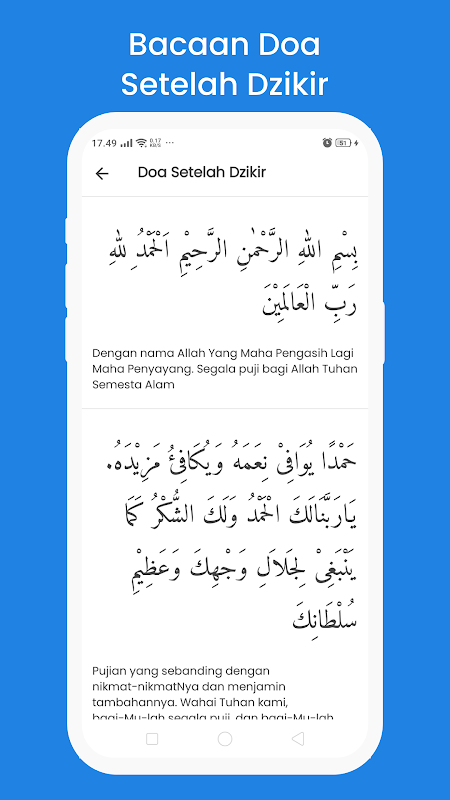 Bacaan Doa
Setelah Dzikir
17.49 0.17 KB/S ... 51
Doa Setelah Dzikir
بِسْمِ اللهِ الرَّحْمٰنِ الرَّحِيْمِ اَلْحَمْدُ لِلّٰهِ
رَبِّ الْعَالَمِيْنَ
Dengan nama Allah Yang Maha Pengasih Lagi
Maha Penyayang. Segala puji bagi Allah Tuhan
Semesta Alam
حَمْدًا يُوَافِيْ نِعَمَهُ وَيُكَافِئُ مَزِيْدَهُ.
يَارَبَّنَالَكَ الْحَمْدُ وَلَكَ الشُّكْرُ كَمَا
يَنْبَغِيْ لِجَلَالِ وَجْهِكَ وَعَظِيْمِ
سُلْطَانِكَ
Pujian yang sebanding dengan
nikmat-nikmatNya dan menjamin
tambahannya. Wahai Tuhan kami,
bagi-Mu-lah segala puji, dan bagi-Mu-lah